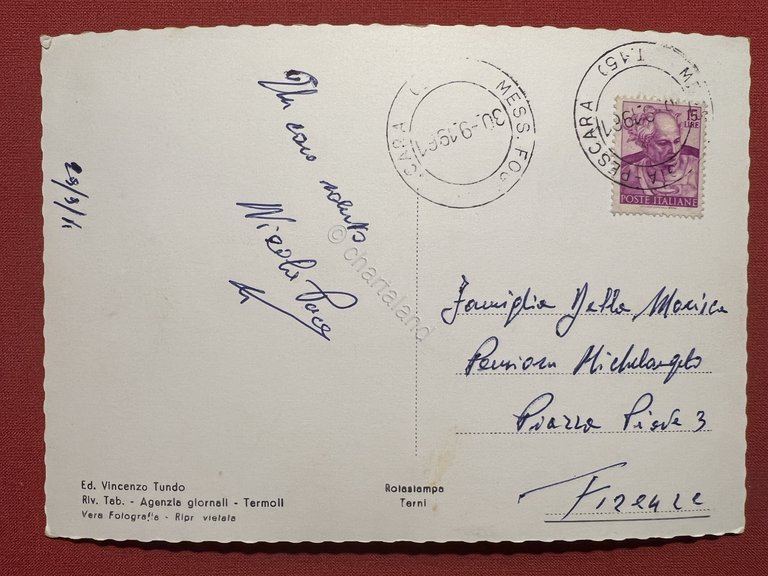 Un caro saluto
Nicola Pace
MESS. FOG
CARA
30-9.1961
T.15)
ME
TA-PESCARA
-9.1961
15
LIRE
POSTE ITALIANE
© chartaland
Famiglia Della
Pensione Michelangelo
Piazza Piave 3
Firenze
Ed. Vincenzo Tundo
Riv. Tab. - Agenzia giornali - Termoli
Vera Fotografia - Ripr. vietata
Rotastampa
Terni